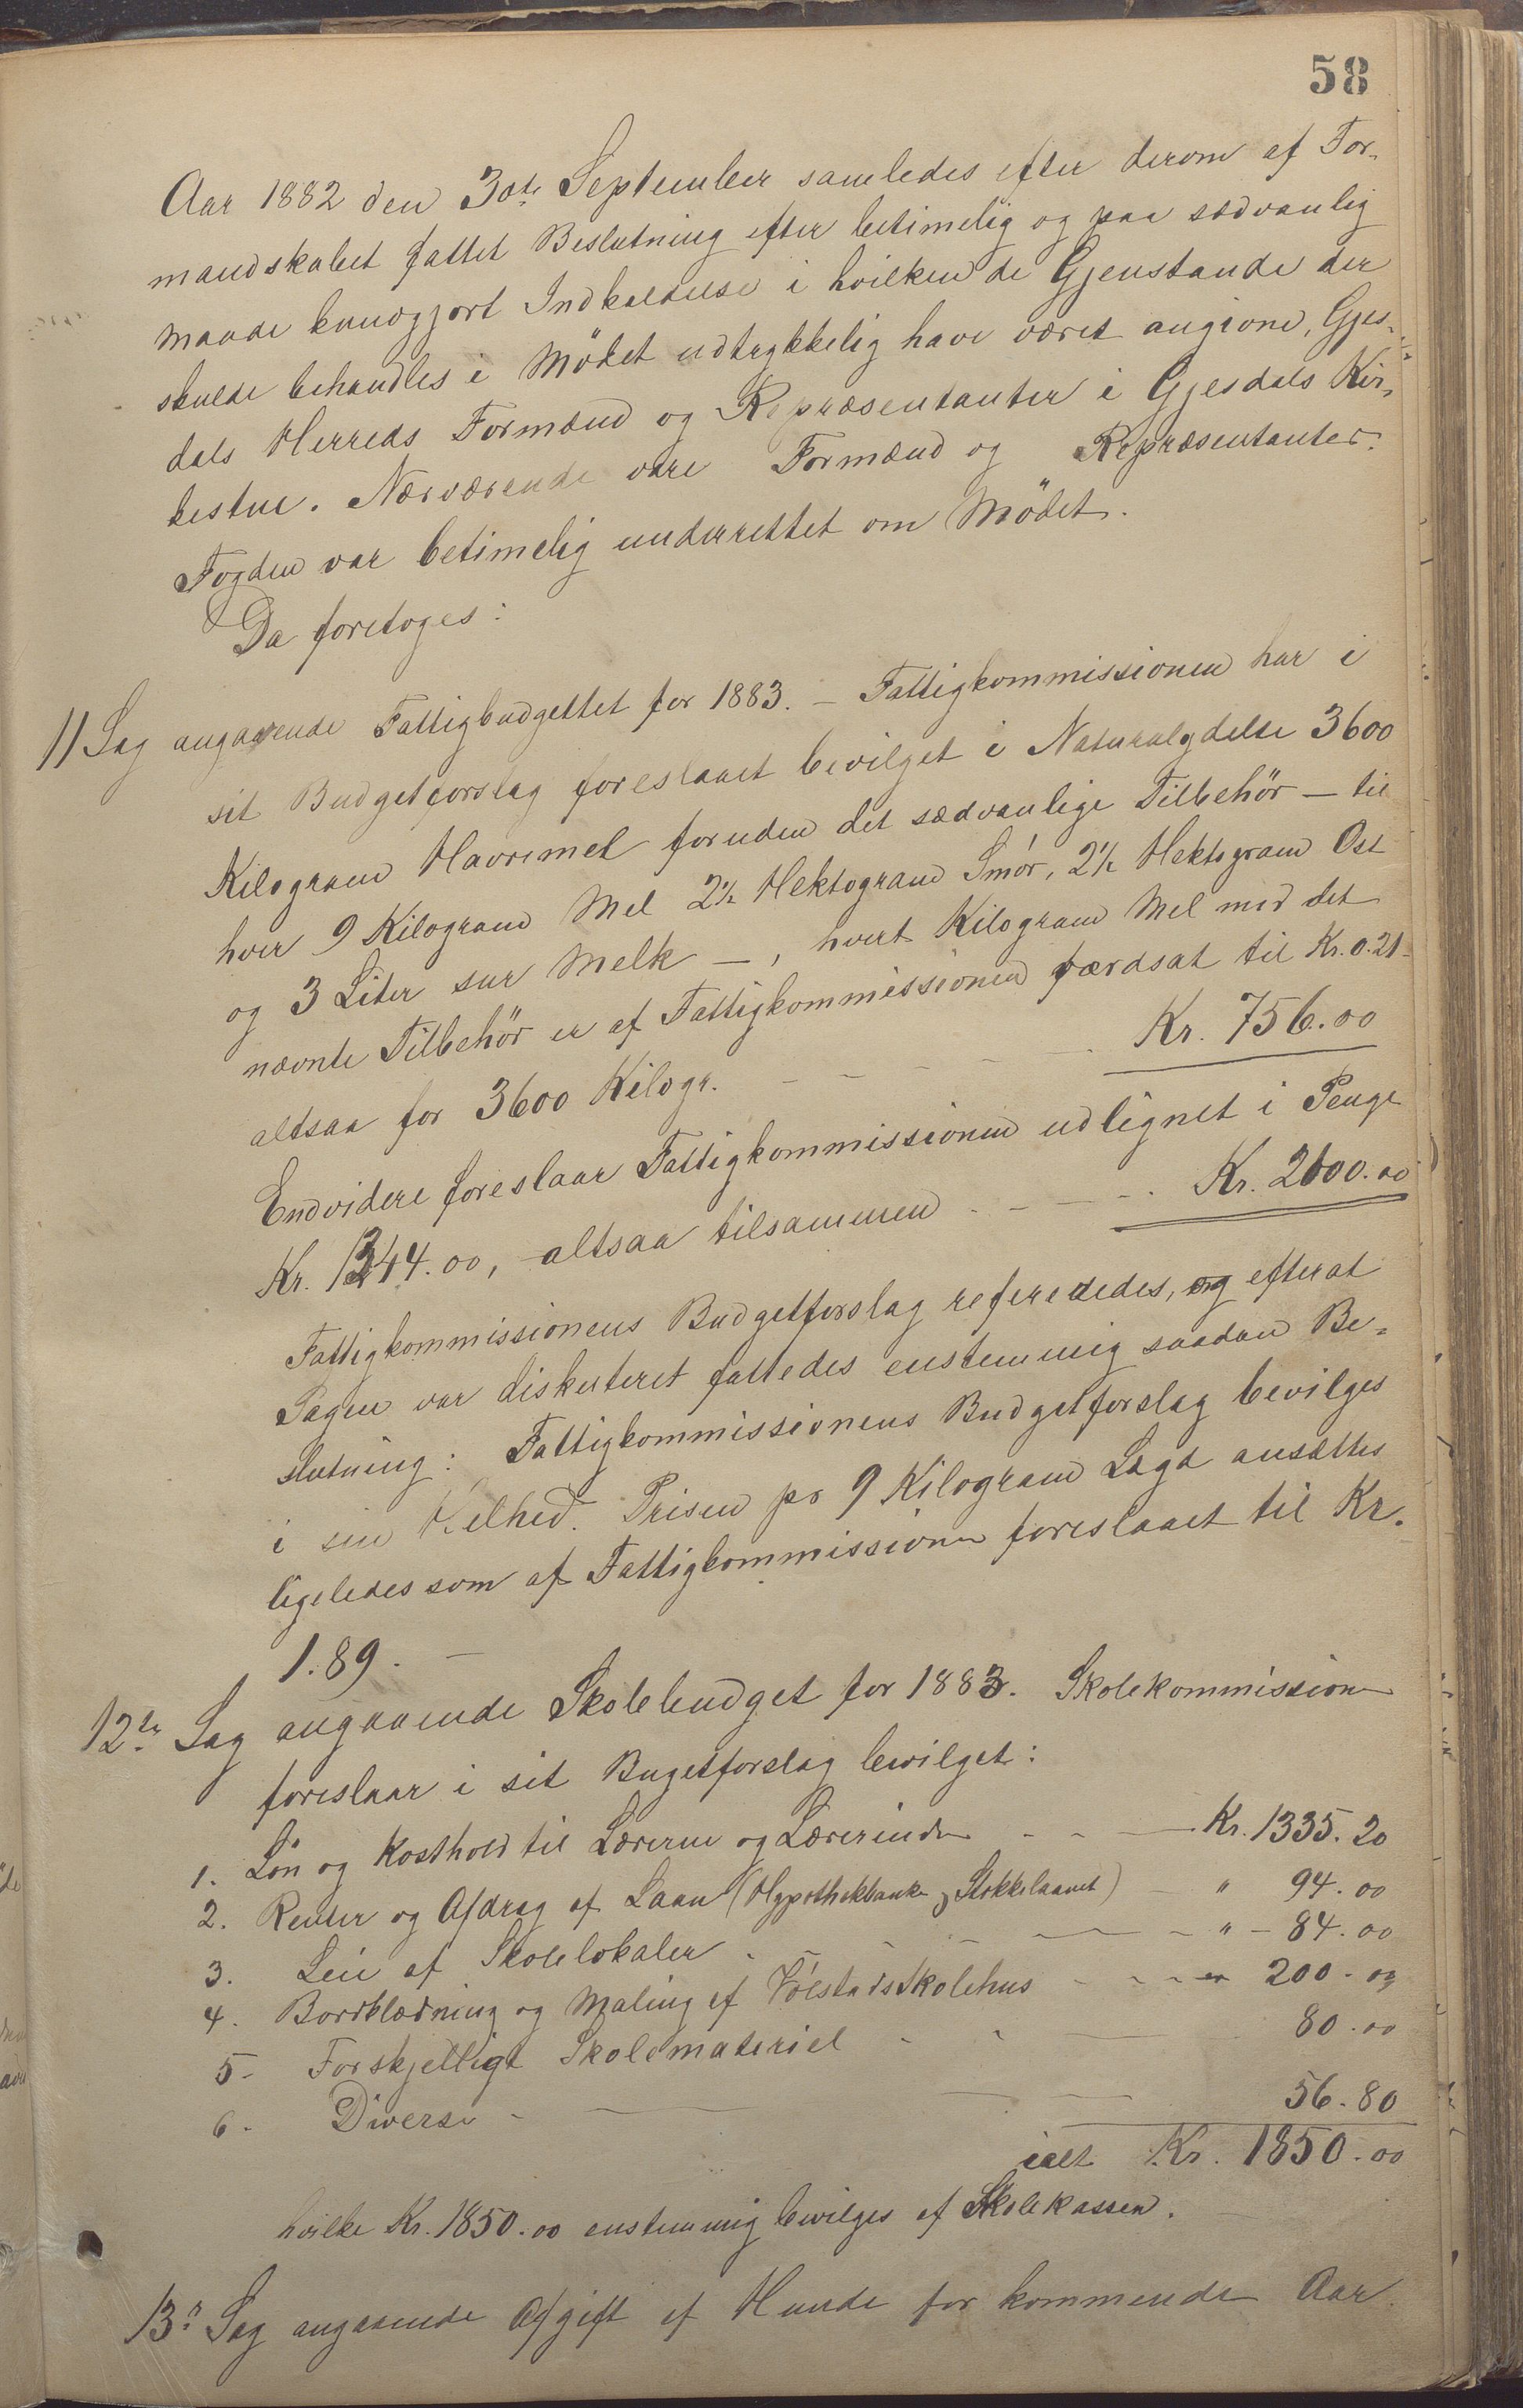 58
Aar 1882 den 30te September samledes efter derom af For-
mandskabet fattet Beslutning efter betimelig og paa sædvanlig
Maade kundgjort Indkaldelse i hvilken de Gjenstande der
skulde behandles i Mødet udtrykkelig have været angivne, Gjes-
dals Herreds Formænd og Repræsentanter i Gjesdals Kir-
kestue. Nærværende vare Formænd og Repræsentanter.
Fogden var betimelig underrettet om Mødet.
Da foretoges:
11 Sag angaaende Fattigbudgettet for 1883. – Fattigkommissionen har i
sit Budgetforslag foreslaaet bevilget i Naturalydelse 3600
Kilogram Havremel foruden det sædvanlige Tilbehör – til
hver 9 Kilogram Mel 2½ Hektogram Smör, 2½ Hektogram Ost
og 3 Liter sur Melk –, hvert Kilogram Mel med det
nævnte Tilbehör er af Fattigkommissionen værdsat til Kr. 0.21 –
altsaa for 3600 Kilogr. – – – – Kr. 756.00
Endvidere foreslaar Fattigkommissionen udlignet i Penge
Kr. 1344.00, altsaa tilsammen – – – Kr. 2100.00
Fattigkommissionens Budgetforslag refereredes, og efterat
Sagen var diskuteret fattedes enstemmig saadan Be-
slutning: Fattigkommissionens Budgetforslag bevilges
i sin Helhed. Prisen pr 9 Kilogram Lægd ansættes
ligeledes som af Fattigkommissionen foreslaaet til Kr.
1.89. –
12te Sag angaaende Skolebudget for 1883. Skolekommissionen
foreslaar i sit Bugetforslag bevilget:
1. Lön og Kosthold til Lærerne og Lærerinden – – – Kr. 1335.20
2. Renter og Afdrag af Laan (Hypothekbanke og Stokkelaanet) – " 94.00
3. Leie af Skolelokaler – – – " – 84.00
4. Bordklædning og Maling af Vølstads Skolehus – – – 200.00
5. Forskjelligt Skolemateriel – – 80.00
6. Diverse – – – 56.80
ialt Kr. 1850.00
hvilke Kr. 1850.00 enstemmig bevilges af Skolekassen.
13. Sag angaaende Afgift af Hunde for kommende Aar.